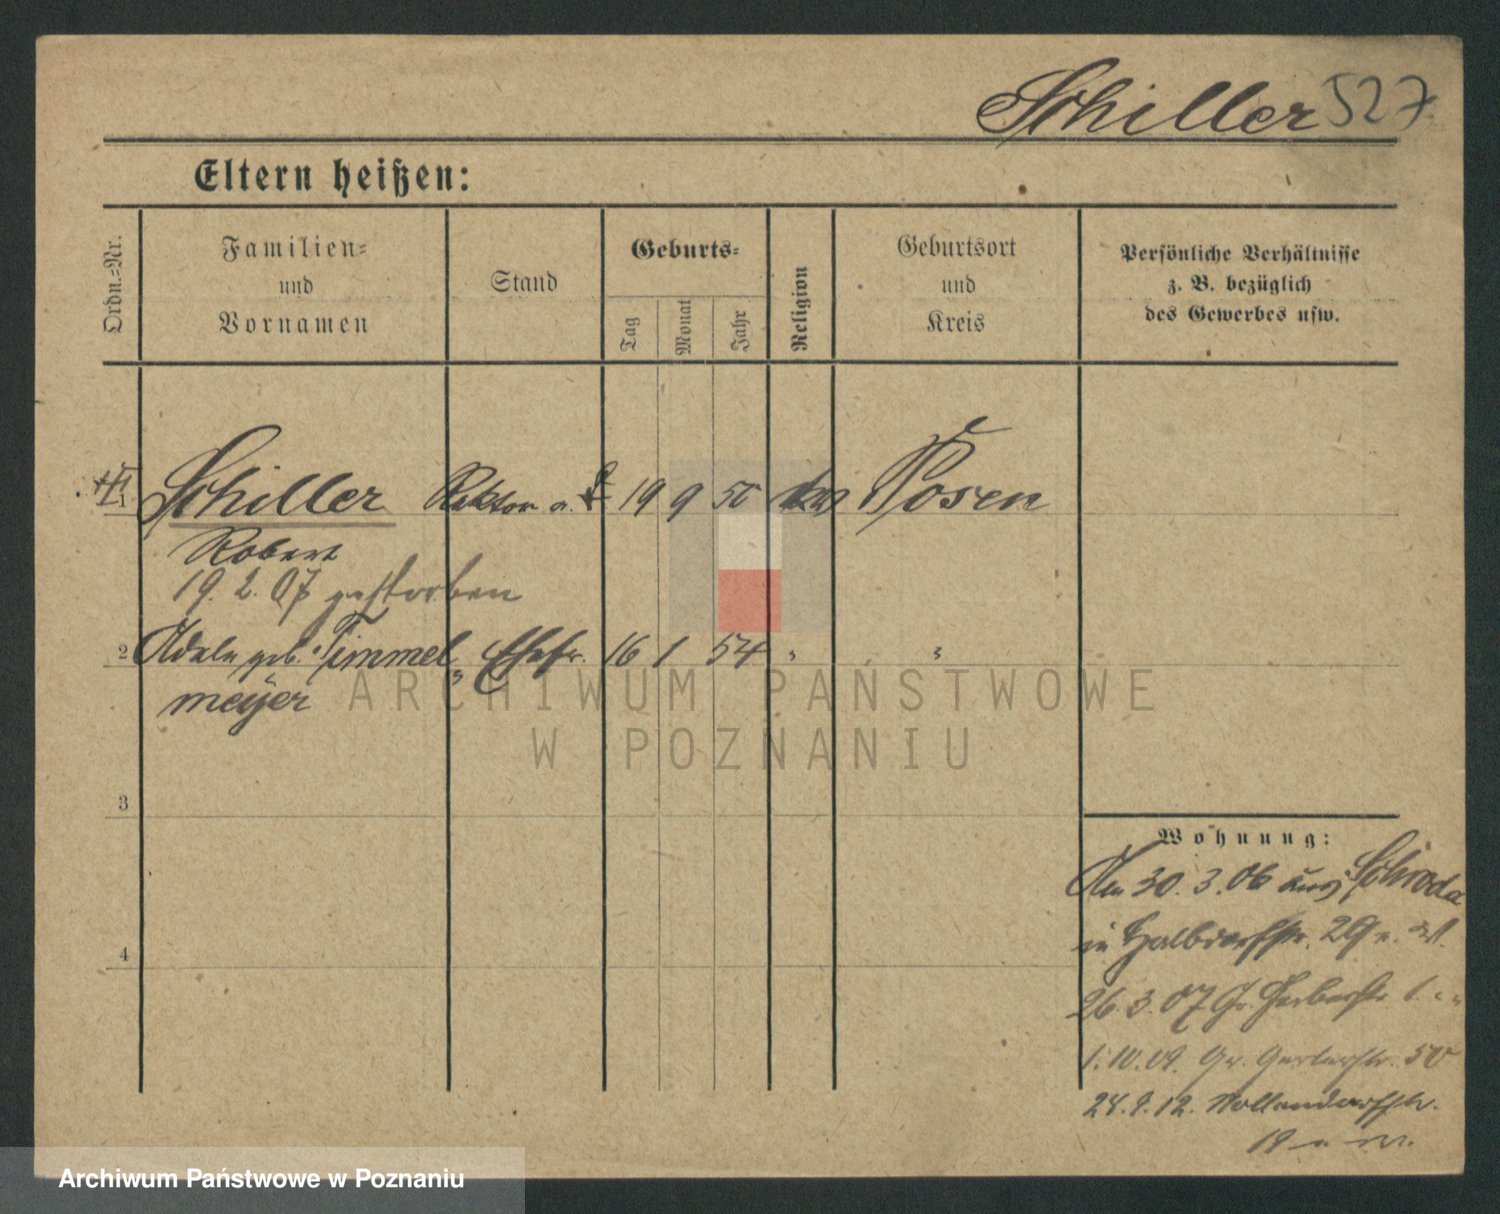 Schiller 527
Eltern heißen:
Ordn.-Nr.
Familien-
und
Vornamen
Stand
Geburts-
Tag
Monat
Jahr
Religion
Geburtsort
und
Kreis
Persönliche Verhältnisse
z. B. bezüglich
des Gewerbes usw.
1 Schiller Rektor a. D 19 9 50 Posen
Robert
19. 2. 07 gestorben
2 Adele geb. Timmel Ehefr. 16 1 54 " "
meyer
3
4
Wohnung:
Am 30. 3. 06 aus Schroda
in Halbdorfstr. 29
26. 3. 07 Gr. Gerberstr. 1.
1. 10. 09. Gr. Gerberstr. 50
24. 9. 12. Nollendorfstr.
19
ARCHIWUM PAŃSTWOWE
W POZNANIU
Archiwum Państwowe w Poznaniu